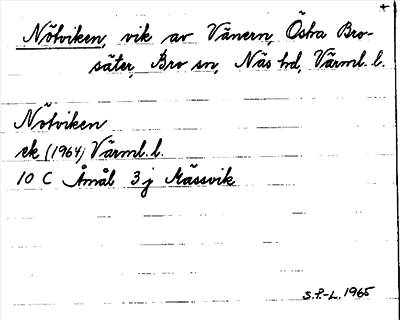 Nötviken, vik av Vänern, Östra Bro-
säter, Bro sn, Näs hd, Värml. l.
Nötviken
ek (1964) Värml. l.
10 C Åmål 3 j Mässvik
S.F.-L. 1965